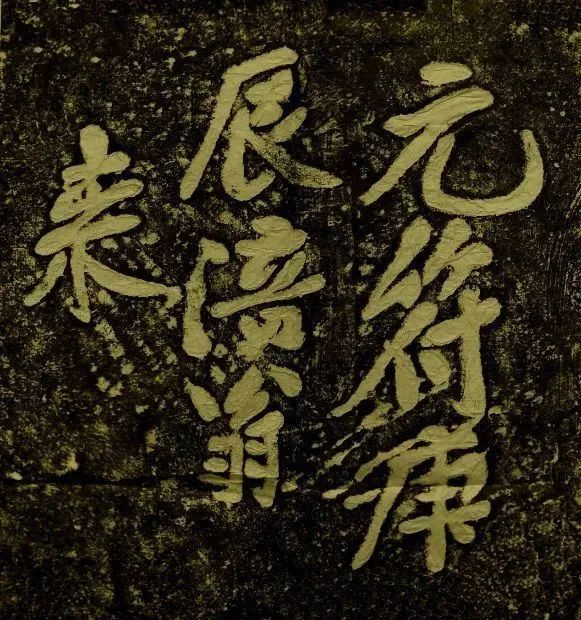 元符庚
辰涪翁
来